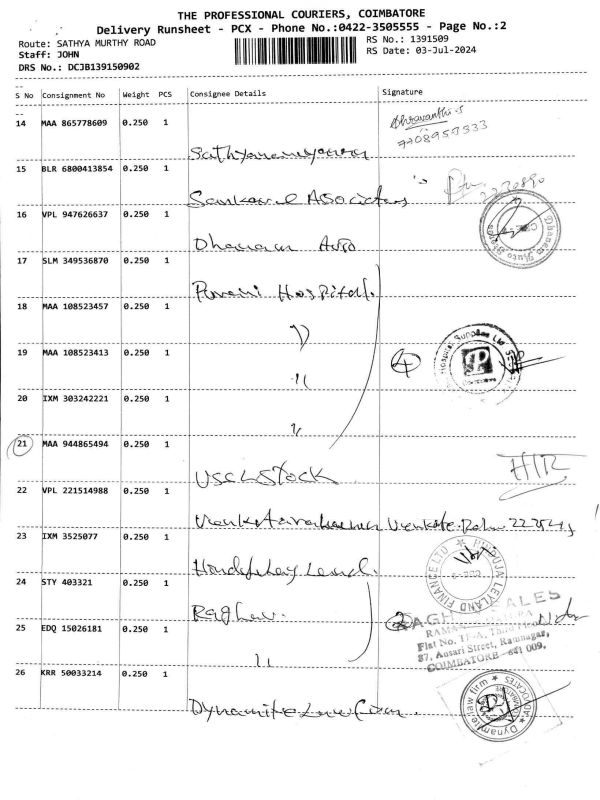 THE PROFESSIONAL COURIERS, COIMBATORE
Delivery Runsheet - PCX - Phone No.:0422-3505555 - Page No.:2
Route: SATHYA MURTHY ROAD
RS No.: 1391509
Staff: JOHN
RS Date: 03-Jul-2024
DRS No.: DCJB139150902
S No Consignment No Weight PCS Consignee Details Signature
14 MAA 865778609 0.250 1
7708959333
15 BLR 6800413854 0.250 1
Associates
16 VPL 947626637 0.250 1
Auto
17 SLM 349536870 0.250 1
Hospital.
18 MAA 108523457 0.250 1
19 MAA 108523413 0.250 1
4
Hospital Supplies Ltd
20 IXM 303242221 0.250 1
21 MAA 944865494 0.250 1
STOCK
22 VPL 221514988 0.250 1
23 IXM 3525077 0.250 1
HINDUJA LEYLAND FINANCE LTD
24 STY 403321 0.250 1
Raghav.
RAGHAV SALES
25 EDQ 15026181 0.250 1
Flat No. 11-A,
87, Ansari Street, Ramnagar,
COIMBATORE - 641 009.
26 KRR 50033214 0.250 1
Dynamite Law firm.
Dynamite law firm ADVOCATES